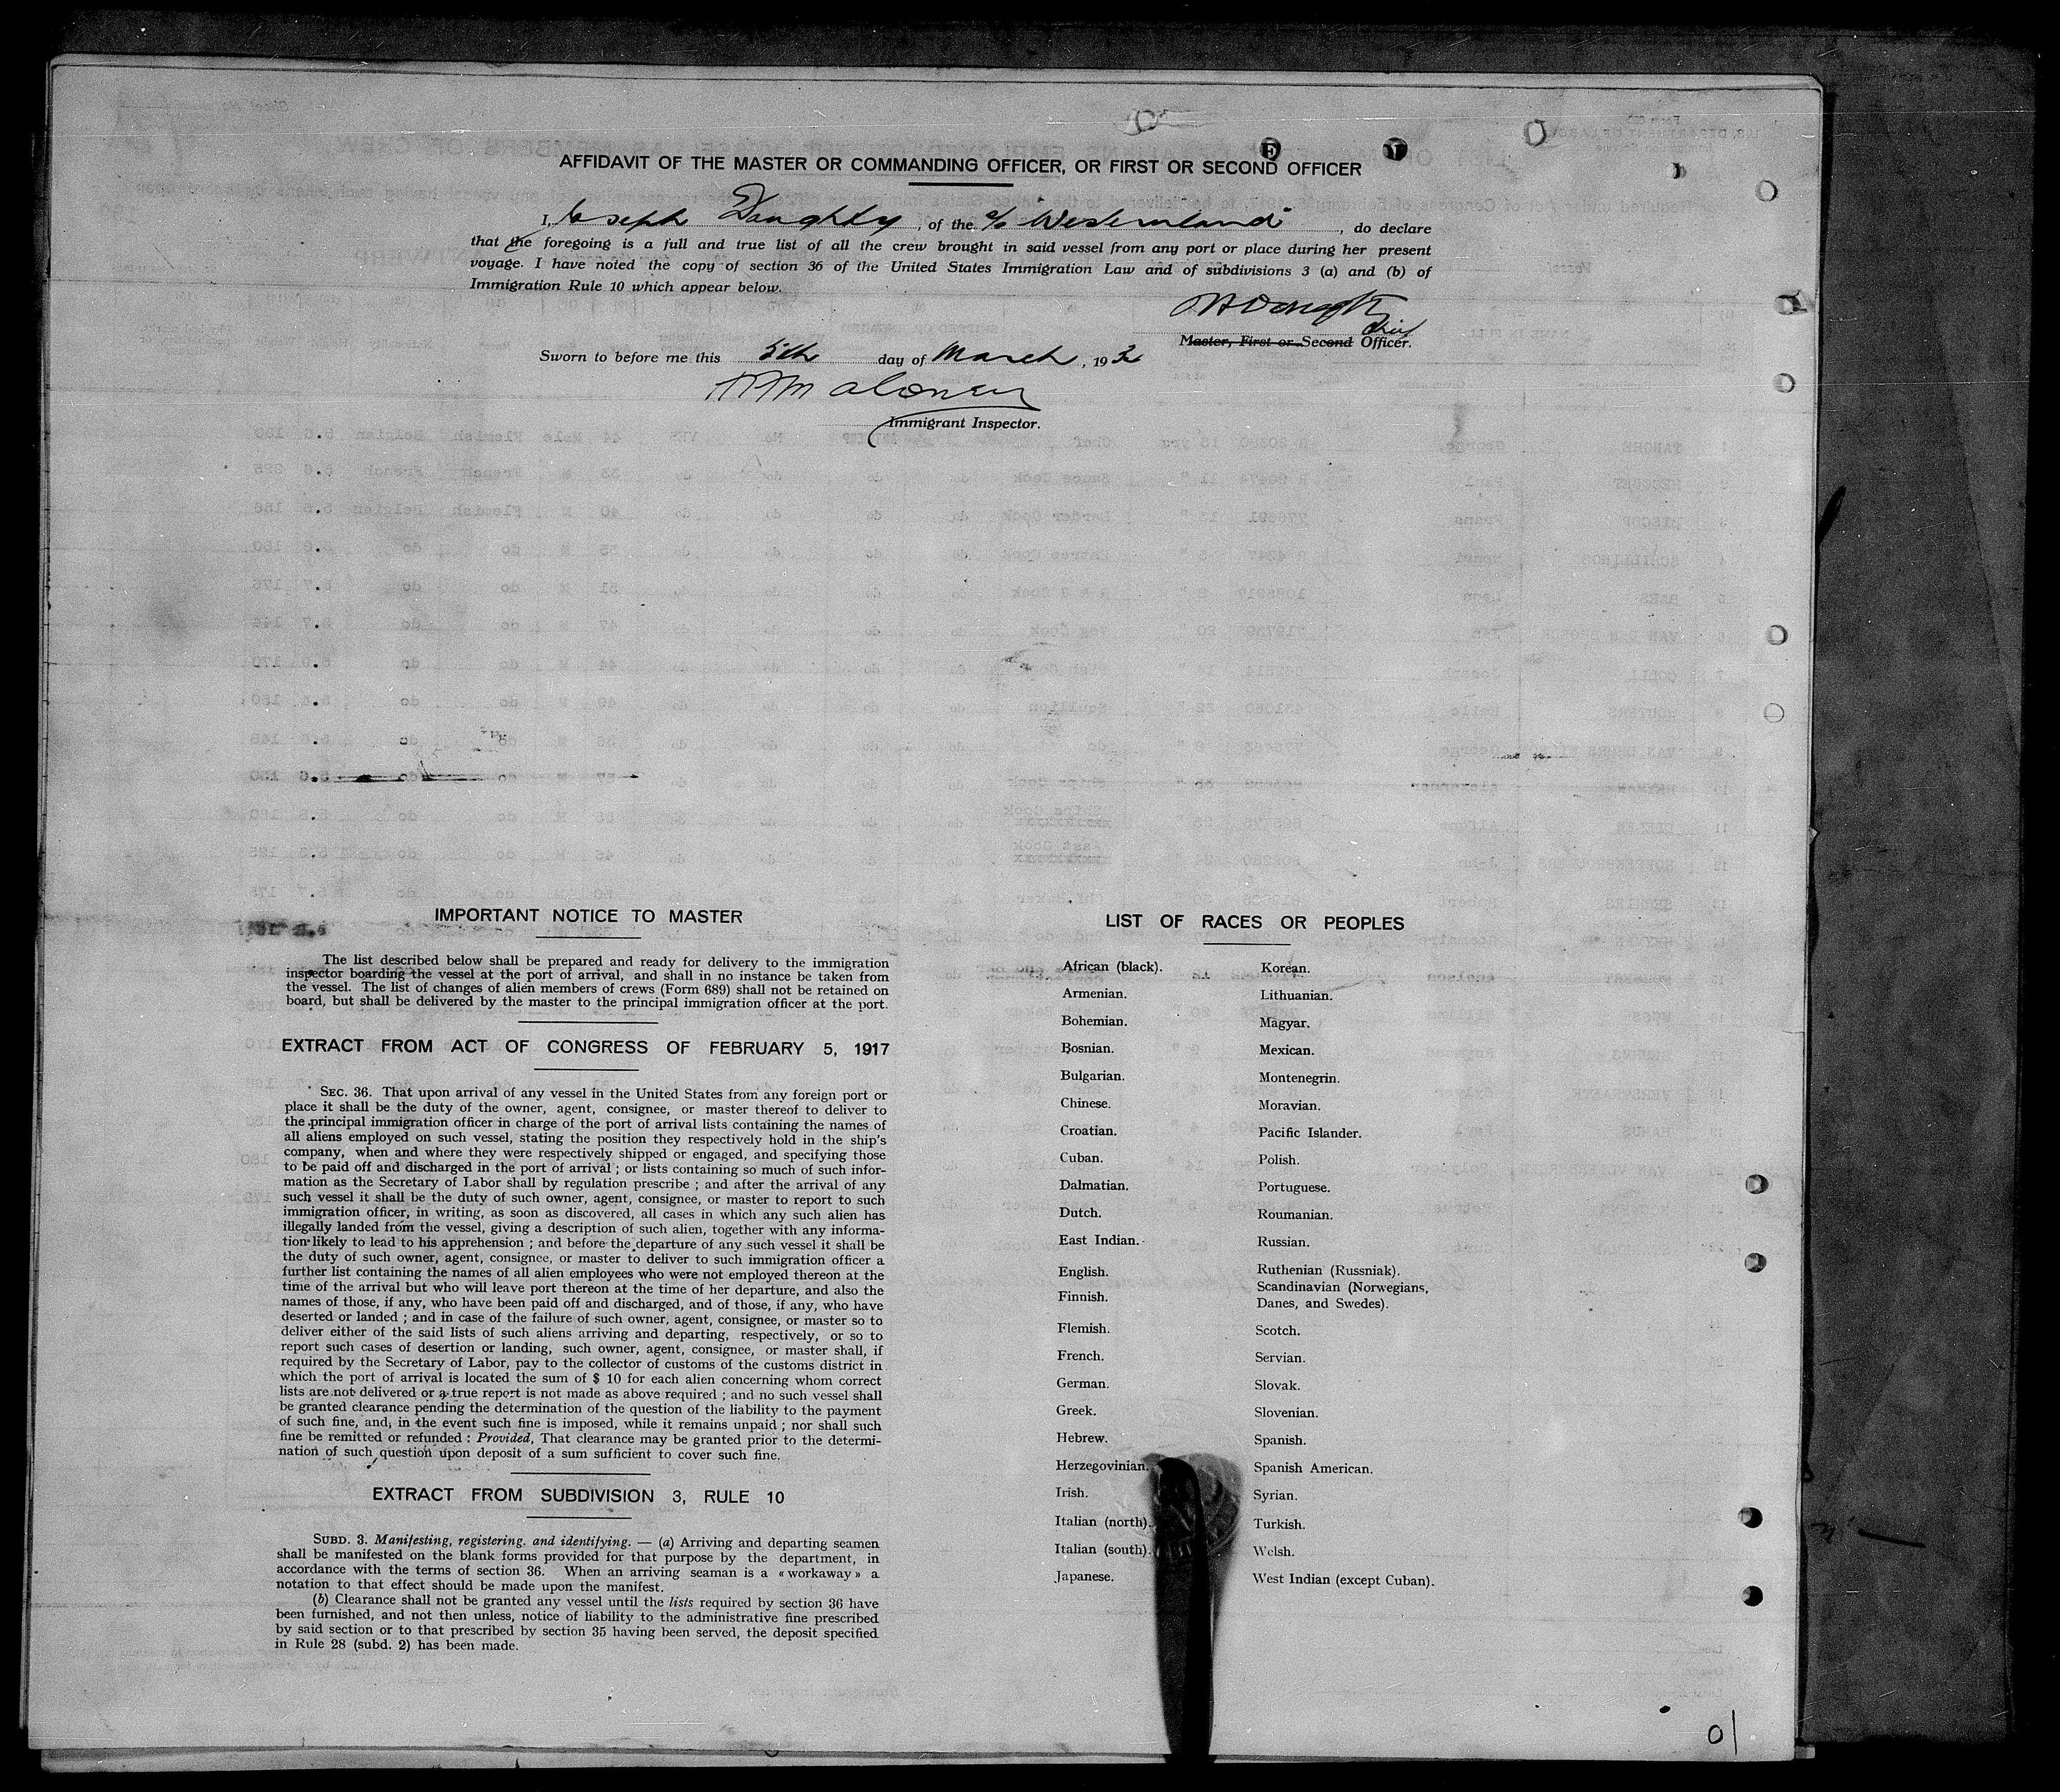 AFFIDAVIT OF THE MASTER OR COMMANDING OFFICER, OR FIRST OR SECOND OFFICER
I, Joseph Doughty, of the s/s Westernland, do declare
that the foregoing is a full and true list of all the crew brought in said vessel from any port or place during her present
voyage. I have noted the copy of section 36 of the United States Immigration Law and of subdivisions 3 (a) and (b) of
Immigration Rule 10 which appear below.
Chief
Master, First or Second Officer.
Sworn to before me this 5th day of March, 193
Immigrant Inspector.
IMPORTANT NOTICE TO MASTER
The list described below shall be prepared and ready for delivery to the immigration
inspector boarding the vessel at the port of arrival, and shall in no instance be taken from
the vessel. The list of changes of alien members of crews (Form 689) shall not be retained on
board, but shall be delivered by the master to the principal immigration officer at the port.
EXTRACT FROM ACT OF CONGRESS OF FEBRUARY 5, 1917
SEC. 36. That upon arrival of any vessel in the United States from any foreign port or
place it shall be the duty of the owner, agent, consignee, or master thereof to deliver to
the principal immigration officer in charge of the port of arrival lists containing the names of
all aliens employed on such vessel, stating the position they respectively hold in the ship's
company, when and where they were respectively shipped or engaged, and specifying those
to be paid off and discharged in the port of arrival ; or lists containing so much of such infor-
mation as the Secretary of Labor shall by regulation prescribe ; and after the arrival of any
such vessel it shall be the duty of such owner, agent, consignee, or master to report to such
immigration officer, in writing, as soon as discovered, all cases in which any such alien has
illegally landed from the vessel, giving a description of such alien, together with any informa-
tion likely to lead to his apprehension ; and before the departure of any such vessel it shall be
the duty of such owner, agent, consignee, or master to deliver to such immigration officer a
further list containing the names of all alien employees who were not employed thereon at the
time of the arrival but who will leave port thereon at the time of her departure, and also the
names of those, if any, who have been paid off and discharged, and of those, if any, who have
deserted or landed ; and in case of the failure of such owner, agent, consignee, or master so to
deliver either of the said lists of such aliens arriving and departing, respectively, or so to
report such cases of desertion or landing, such owner, agent, consignee, or master shall, if
required by the Secretary of Labor, pay to the collector of customs of the customs district in
which the port of arrival is located the sum of $ 10 for each alien concerning whom correct
lists are not delivered or a true report is not made as above required ; and no such vessel shall
be granted clearance pending the determination of the question of the liability to the payment
of such fine, and, in the event such fine is imposed, while it remains unpaid ; nor shall such
fine be remitted or refunded : Provided, That clearance may be granted prior to the determi-
nation of such question upon deposit of a sum sufficient to cover such fine.
EXTRACT FROM SUBDIVISION 3, RULE 10
SUBD. 3. Manifesting, registering, and identifying. — (a) Arriving and departing seamen
shall be manifested on the blank forms provided for that purpose by the department, in
accordance with the terms of section 36. When an arriving seaman is a « workaway » a
notation to that effect should be made upon the manifest.
(b) Clearance shall not be granted any vessel until the lists required by section 36 have
been furnished, and not then unless, notice of liability to the administrative fine prescribed
by said section or to that prescribed by section 35 having been served, the deposit specified
in Rule 28 (subd. 2) has been made.
LIST OF RACES OR PEOPLES
African (black).
Armenian.
Bohemian.
Bosnian.
Bulgarian.
Chinese.
Croatian.
Cuban.
Dalmatian.
Dutch.
East Indian.
English.
Finnish.
Flemish.
French.
German.
Greek.
Hebrew.
Herzegovinian.
Irish.
Italian (north).
Italian (south).
Japanese.
Korean.
Lithuanian.
Magyar.
Mexican.
Montenegrin.
Moravian.
Pacific Islander.
Polish.
Portuguese.
Roumanian.
Russian.
Ruthenian (Russniak).
Scandinavian (Norwegians,
Danes, and Swedes).
Scotch.
Servian.
Slovak.
Slovenian.
Spanish.
Spanish American.
Syrian.
Turkish.
Welsh.
West Indian (except Cuban).